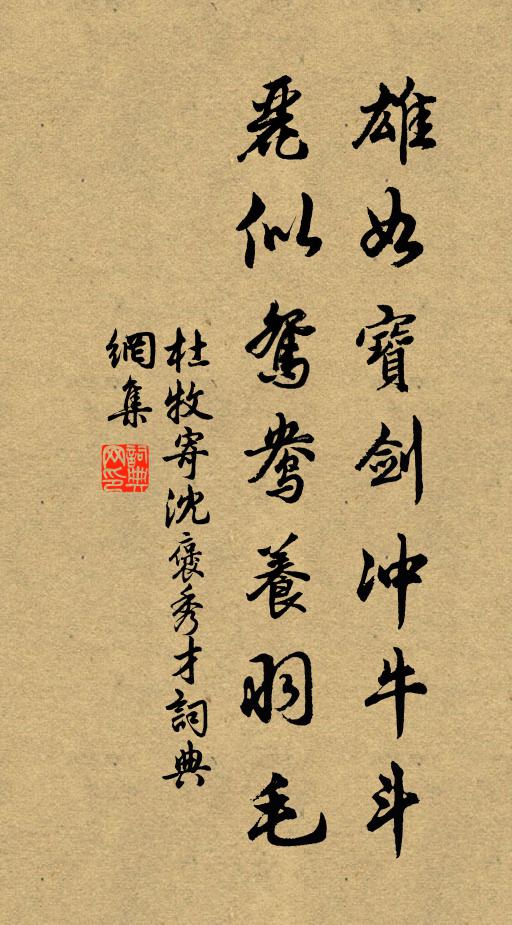 雄如寶劍冲牛斗
麗似鴛鴦養羽毛
杜牧寄沈褒秀才詞典
網集
詞典
网印